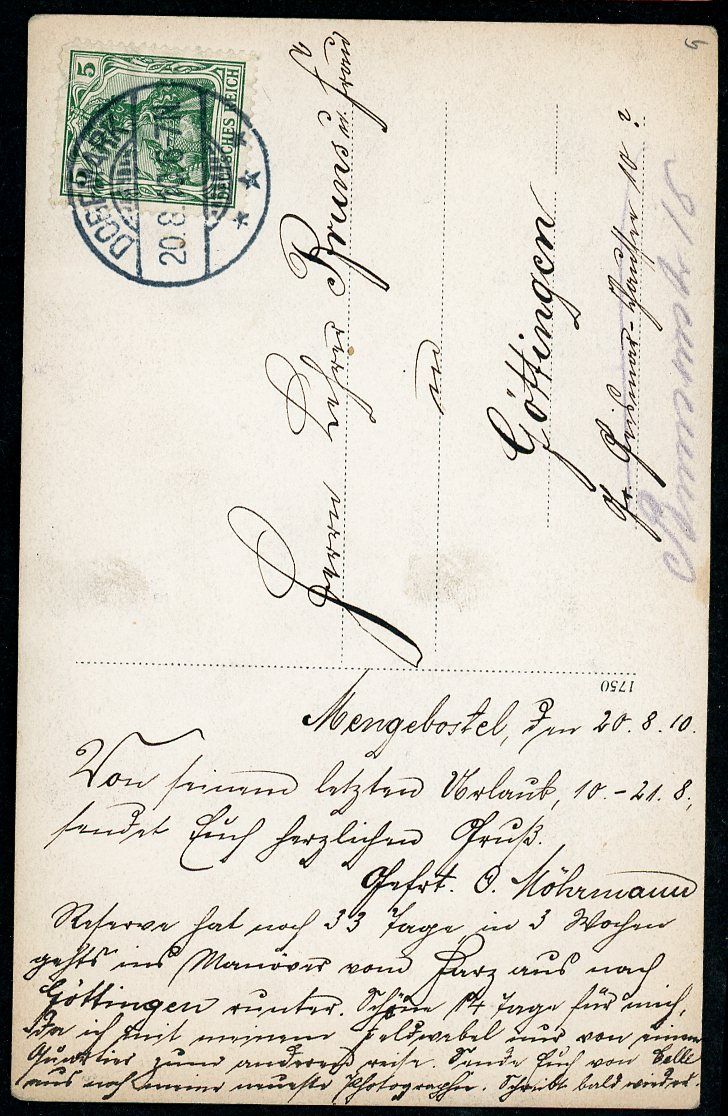 5
DEUTSCHES REICH
DORFMARK
20.8.10. 6-7N.
Herrn Lehrer Bruns u. Frau
in
Göttingen
Gr. Geismar-Chaussee 10 ?
1750
Mengebostel, den 20.8.10.
Von seinem letzten Urlaub, 10.-21.8.,
sendet Euch herzlichen Gruß.
Gefrt. O. Möhrmann
Reserve hat noch 33 Tage, in 3 Wochen
gehts ins Manöver vom Harz aus nach
Göttingen runter. Schöne 14 Tage für mich,
da ich mit meinem Feldwebel nur von einem
Quartier zum anderen reise. Sende Euch von Celle
aus noch meine neueste Photographie. Schreibt bald wieder.